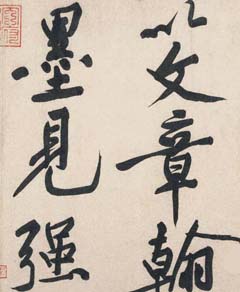 以文章翰
墨見强